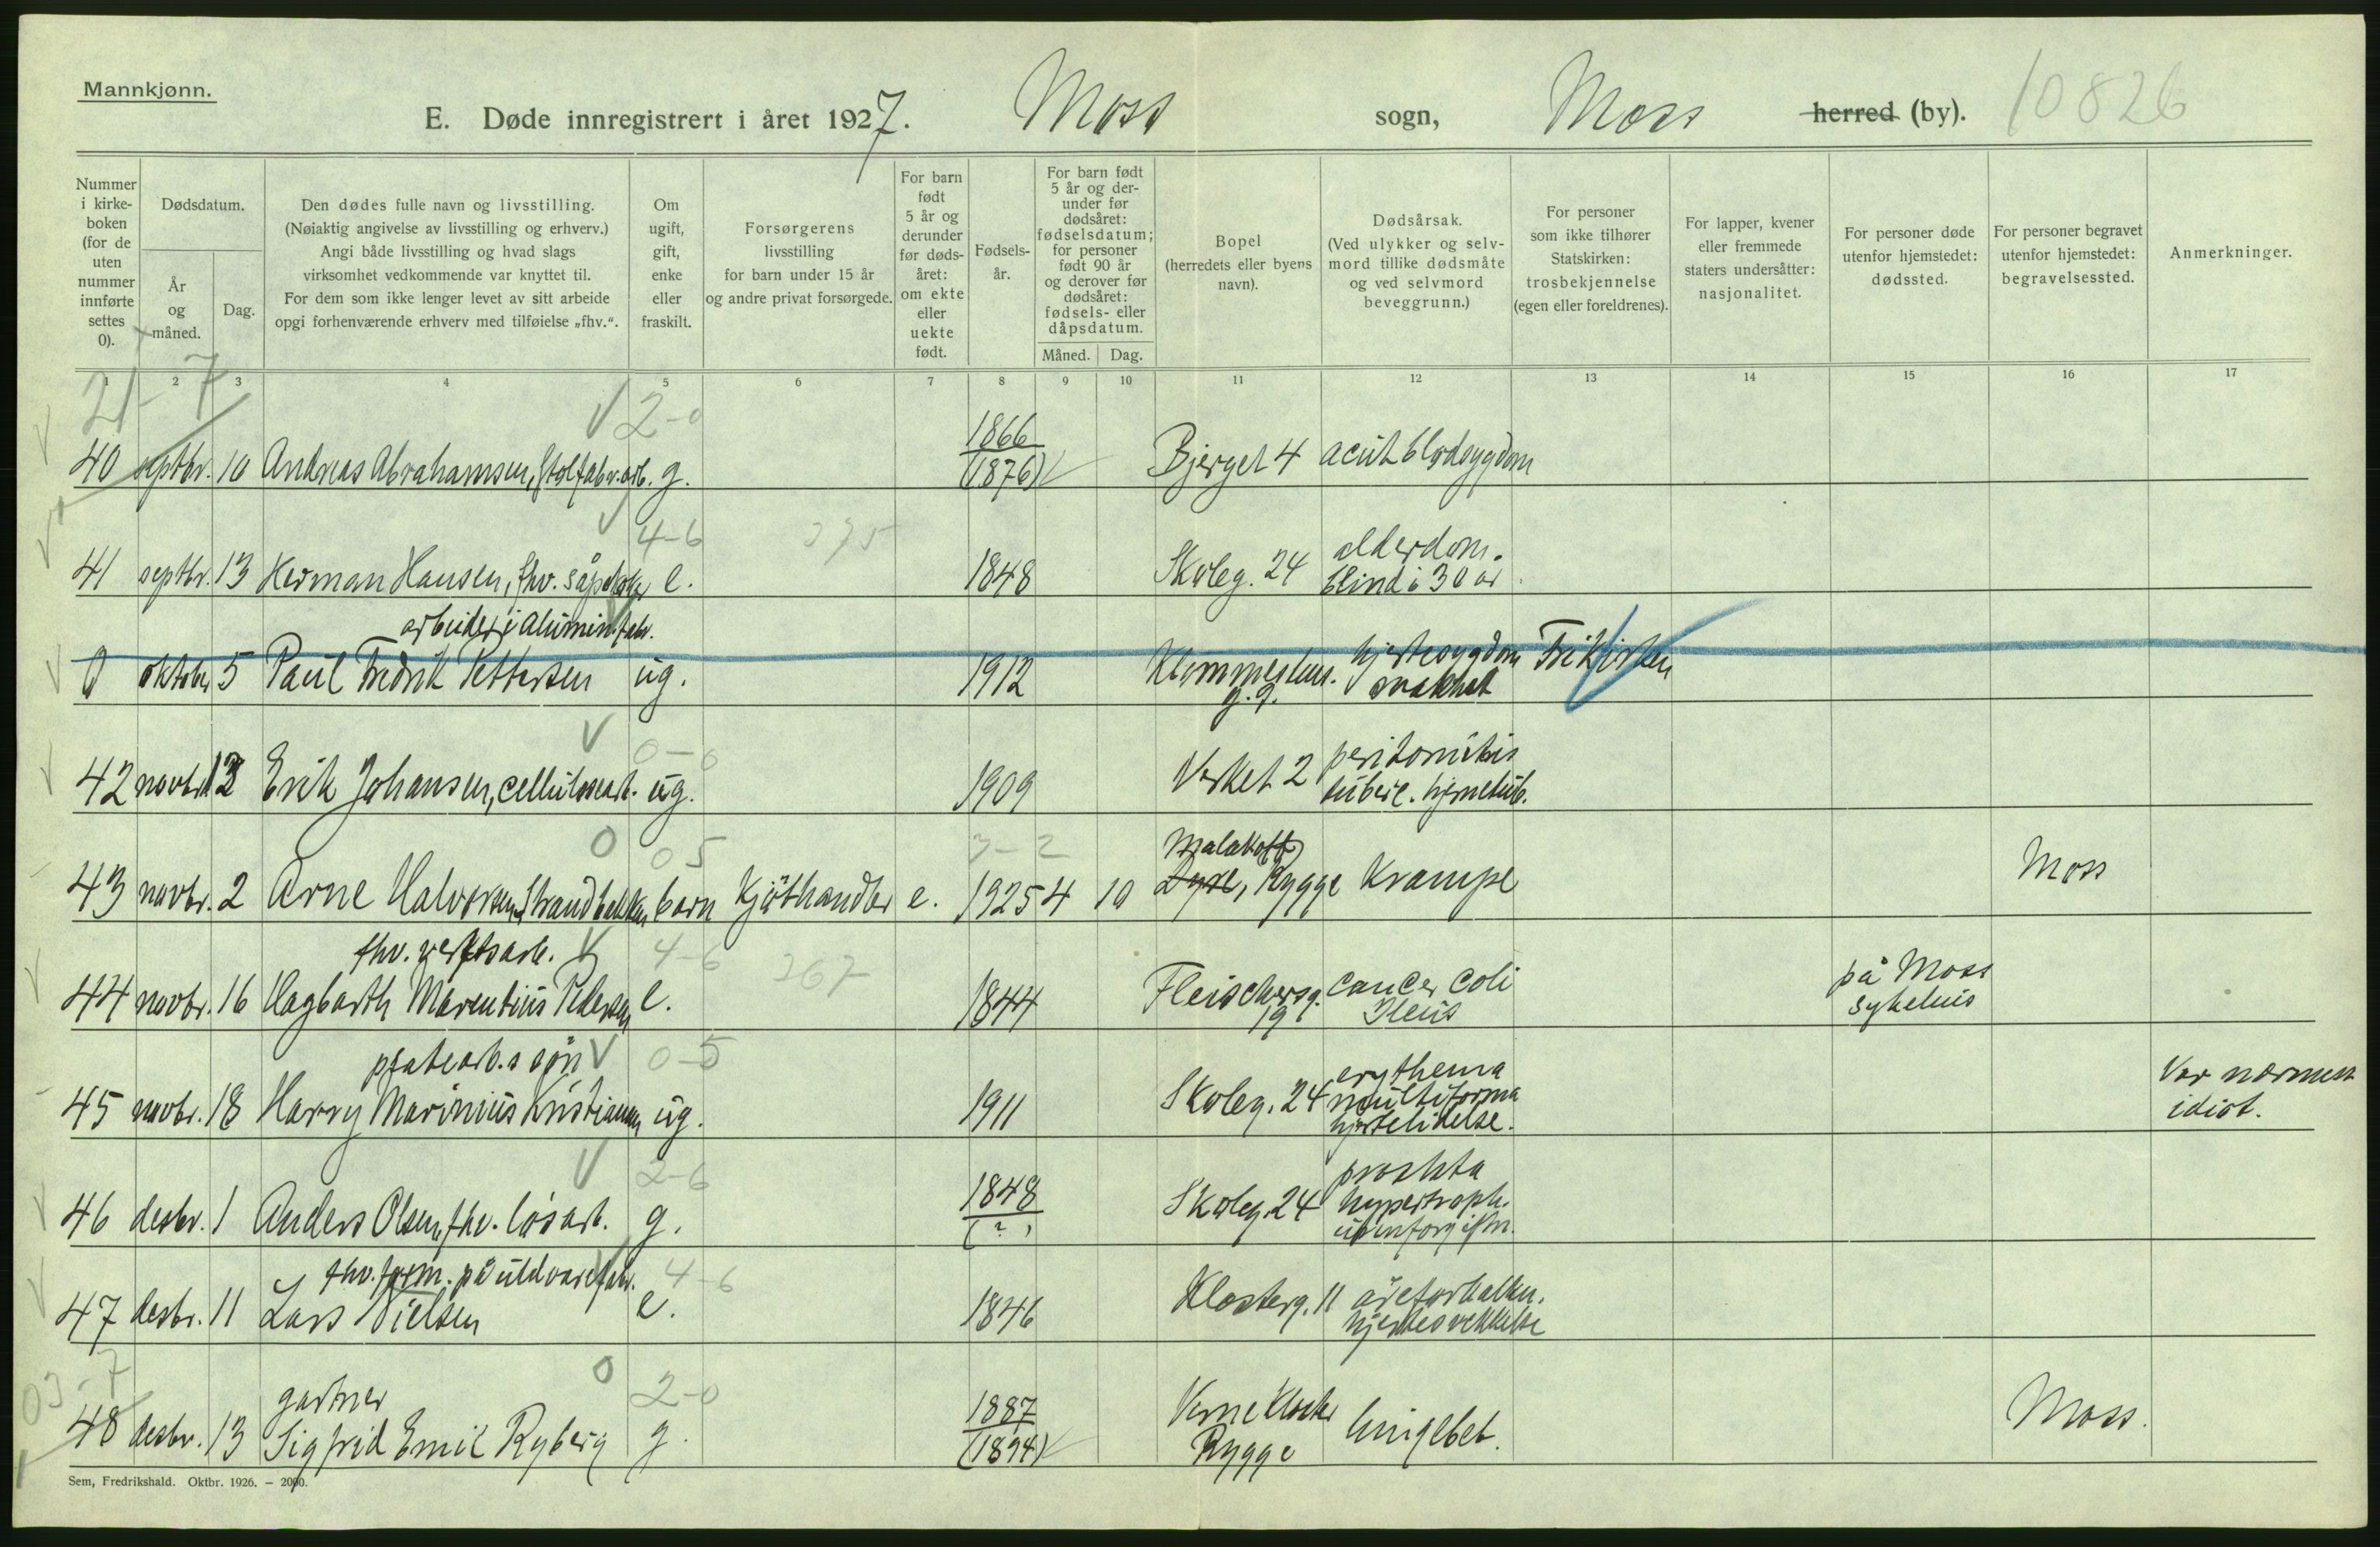 Mannkjønn.
E. Døde innregistrert i året 1927. Moss sogn, Moss herred (by). 10826
Nummer i kirke- boken (for de uten nummer innførte settes 0).
Dødsdatum.
År og måned.
Dag.
Den dødes fulle navn og livsstilling.
(Nøiaktig angivelse av livsstilling og erhverv.)
Angi både livsstilling og hvad slags
virksomhet vedkommende var knyttet til.
For dem som ikke lenger levet av sitt arbeide
opgi forhenværende erhverv med tilføielse „fhv.“.
Om ugift, gift, enke eller fraskilt.
Forsørgerens livsstilling for barn under 15 år og andre privat forsørgede.
For barn født 5 år og derunder før døds- året: om ekte eller uekte født.
Fødsels- år.
For barn født 5 år og der- under før dødsåret: fødselsdatum; for personer født 90 år og derover før dødsåret: fødsels- eller dåpsdatum.
Måned. Dag.
Bopel (herredets eller byens navn).
Dødsårsak. (Ved ulykker og selv- mord tillike dødsmåte og ved selvmord beveggrunn.)
For personer som ikke tilhører Statskirken: trosbekjennelse (egen eller foreldrenes).
For lapper, kvener eller fremmede staters undersåtter: nasjonalitet.
For personer døde utenfor hjemstedet: dødssted.
For personer begravet utenfor hjemstedet: begravelsessted.
Anmerkninger.
1 2 3 4 5 6 7 8 9 10 11 12 13 14 15 16 17
21-7 2-0
1866
40 septbr. 10 Andreas Abrahamsen, Stolfabr.arb. g. (1876) Bjerget 4 acut blodsygdom
4-6 375 alderdom.
41 septbr. 13 Herman Hansen, fhv. e. 1848 Skoleg. 24 blind i 30 år
arbeider i Alumin.fabr.
0 oktober 5 Paul Fredrik Pettersen ug. 1912 hjertesygdom Frikirken
g. 9. svakhet
0-6 peritonitis
42 novbr. 12 Erik Johansen, cellulosearb. ug. 1909 Verket 2 tuberc. hjernetub.
0 05 3-2 Malakoff
43 novbr. 2 Arne Halvorsen Strandbakken barn Kjøthandler e. 1925 4 10 Dyre, Rygge Krampe Moss
fhv. verftsarb. 4-6 267
44 novbr. 16 Hagbarth Marentius Pedersen e. 1844 Fleischersg. 19 cancer coli Ileus på Moss sykehus
arb.s søn 0-5 erythema
45 novbr. 18 Harry Marinius Kristiansen ug. 1911 Skoleg. 24 multiforma hjertelidelse. Var nærmest idiot.
2-6 1848 prostata
46 desbr. 1 Anders Olsen, fhv. løsarb. g. (?) Skoleg. 24 hypertroph. urinforgiftn.
fhv. form. på uldvarefabr. 4-6
47 desbr. 11 Lars Nielsen e. 1846 Klosterg. 11 åreforkalkn. hjertesvekkelse
03-7 gartner 0 2-0 1887
48 desbr. 13 Sigfrid Emil Ryberg g. (1894) Verne Kloster Rygge lungebet. Moss.
Sem, Fredrikshald. Oktbr. 1926. – 2000.